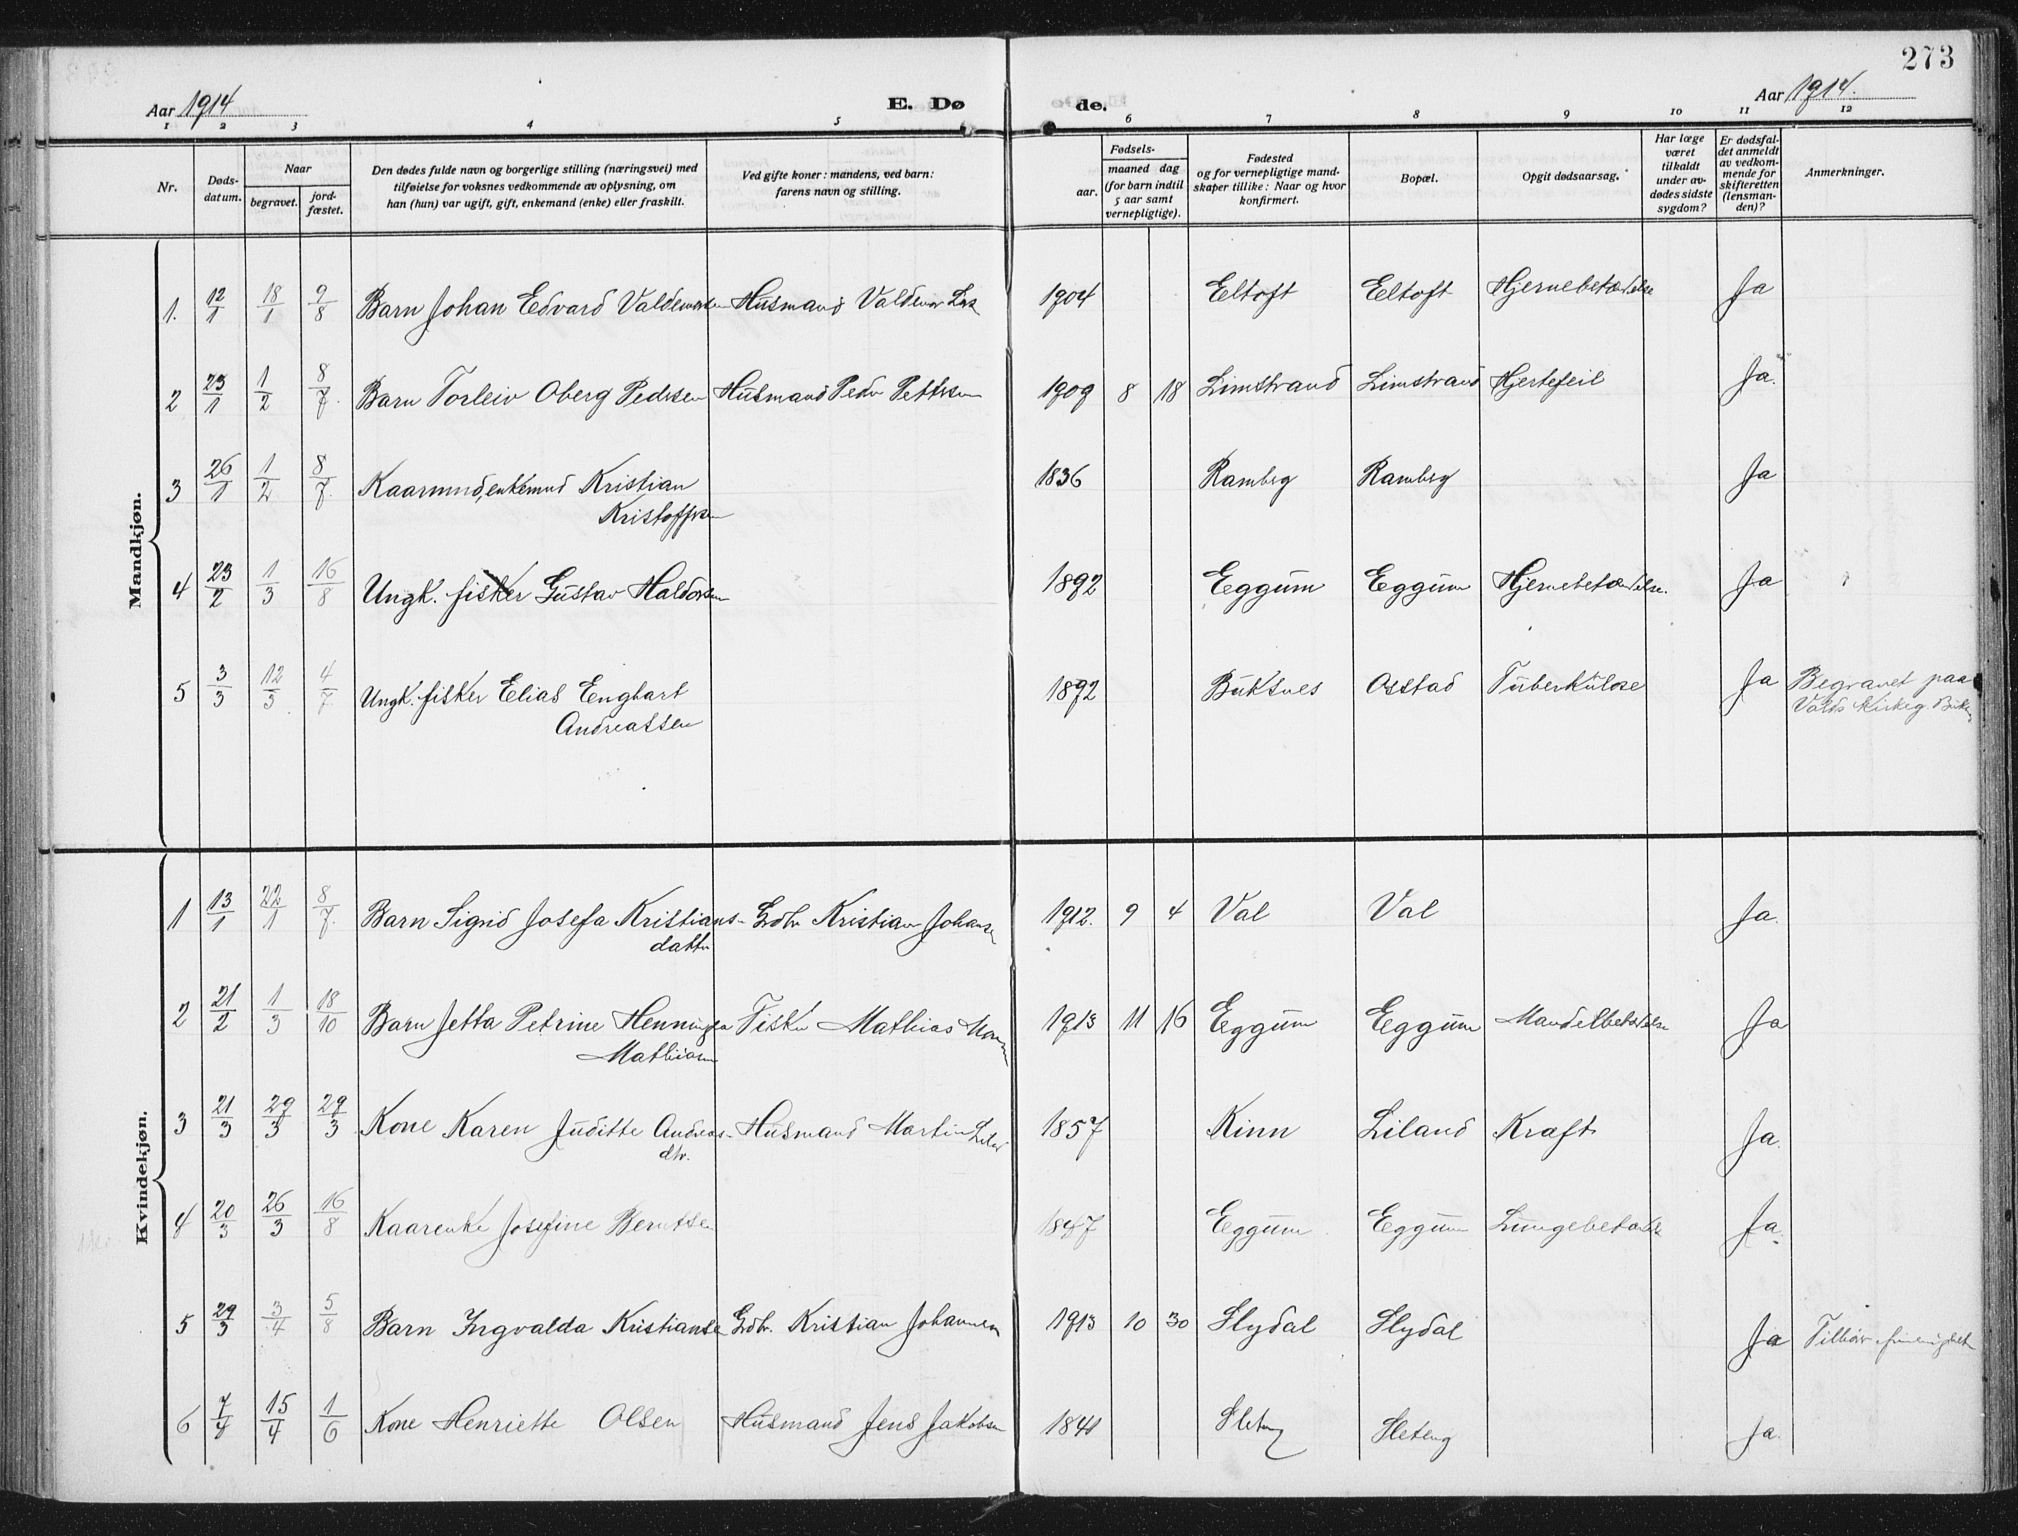 273
Aar 1914
E. Dø
de.
Aar 1914.
1 2 3 4 5 6 7 8 9 10 11 12
Nr.
Døds-
datum.
Naar
begravet.
jord-
fæstet.
Den dødes fulde navn og borgerlige stilling (næringsvei) med
tilføielse for voksnes vedkommende av oplysning, om
han (hun) var ugift, gift, enkemand (enke) eller fraskilt.
Ved gifte koner: mandens, ved barn:
farens navn og stilling.
Fødsels-
aar.
maaned dag
(for barn indtil
5 aar samt
vernepligtige).
Fødested
og for vernepligtige mand-
skaper tillike: Naar og hvor
konfirmert.
Bopæl.
Opgit dødsaarsag.
Har læge
været
tilkaldt
under av-
dødes sidste
sygdom?
Er dødsfal-
det anmeldt
av vedkom-
mende for
skifteretten
(lensman-
den)?
Anmerkninger.
Mandkjøn.
1. 12/1 18/1 9/8 Barn Johan Edvard Valdemarsen Husmand Valdemar 1904 Eltoft Eltoft Hjernebetændelse Ja
2 23/1 1/2 8/7. Barn Torleiv Oberg Pedersen Husmand Peder Pettersen 1909 8 18 Limstrand Limstrand Hjertefeil Ja.
3 26/1 1/2 8/7. Kaarmand, enkemand Kristian 1836 Ramberg Ramberg Ja
Kristoffersen
4 23/2 1/3 16/8 Ungk. fisker Gustav Haldorsen 1892 Eggum Eggum Hjernebetændelse. Ja
5 3/3 12/3 4/7. Ungk. fisker Elias Enghart 1892 Buksnes Osstad Tuberkulose Ja Begravet paa
Andreassen
Valds Kirkeg.
Kvindekjøn.
1 13/1 22/1 8/7. Barn Sigrid Josefa Kristians- Grdbr Kristian Johansen 1912. 9 4 Val Val Ja.
datter
2 21/2 1/3 18/10 Barn Jetta Petrine Henninga Fisker Mathias 1913 11 16 Eggum Eggum Mandelbetændelse Ja
Mathiassen
3 21/3 29/3 29/3 Kone Karen Juditte Andreas- Husmand Martin 1857 Kinn Liland Kræft Ja.
dtr.
4 20/3 26/3 16/8 Kaarenke Josefine Berntsen 1847 Eggum Eggum Lungebetændelse Ja.
5 29/3 3/4 5/8 Barn Ingvalda Kristiansen Grdbr. Kristian Johannesen 1913 10 30 Slydal Slydal Ja Tilhør frimenighet
6 7/4 15/4 1/6 Kone Henriette Olsen Husmand Jens Jakobsen 1841 Sleteng Sleteng Ja.